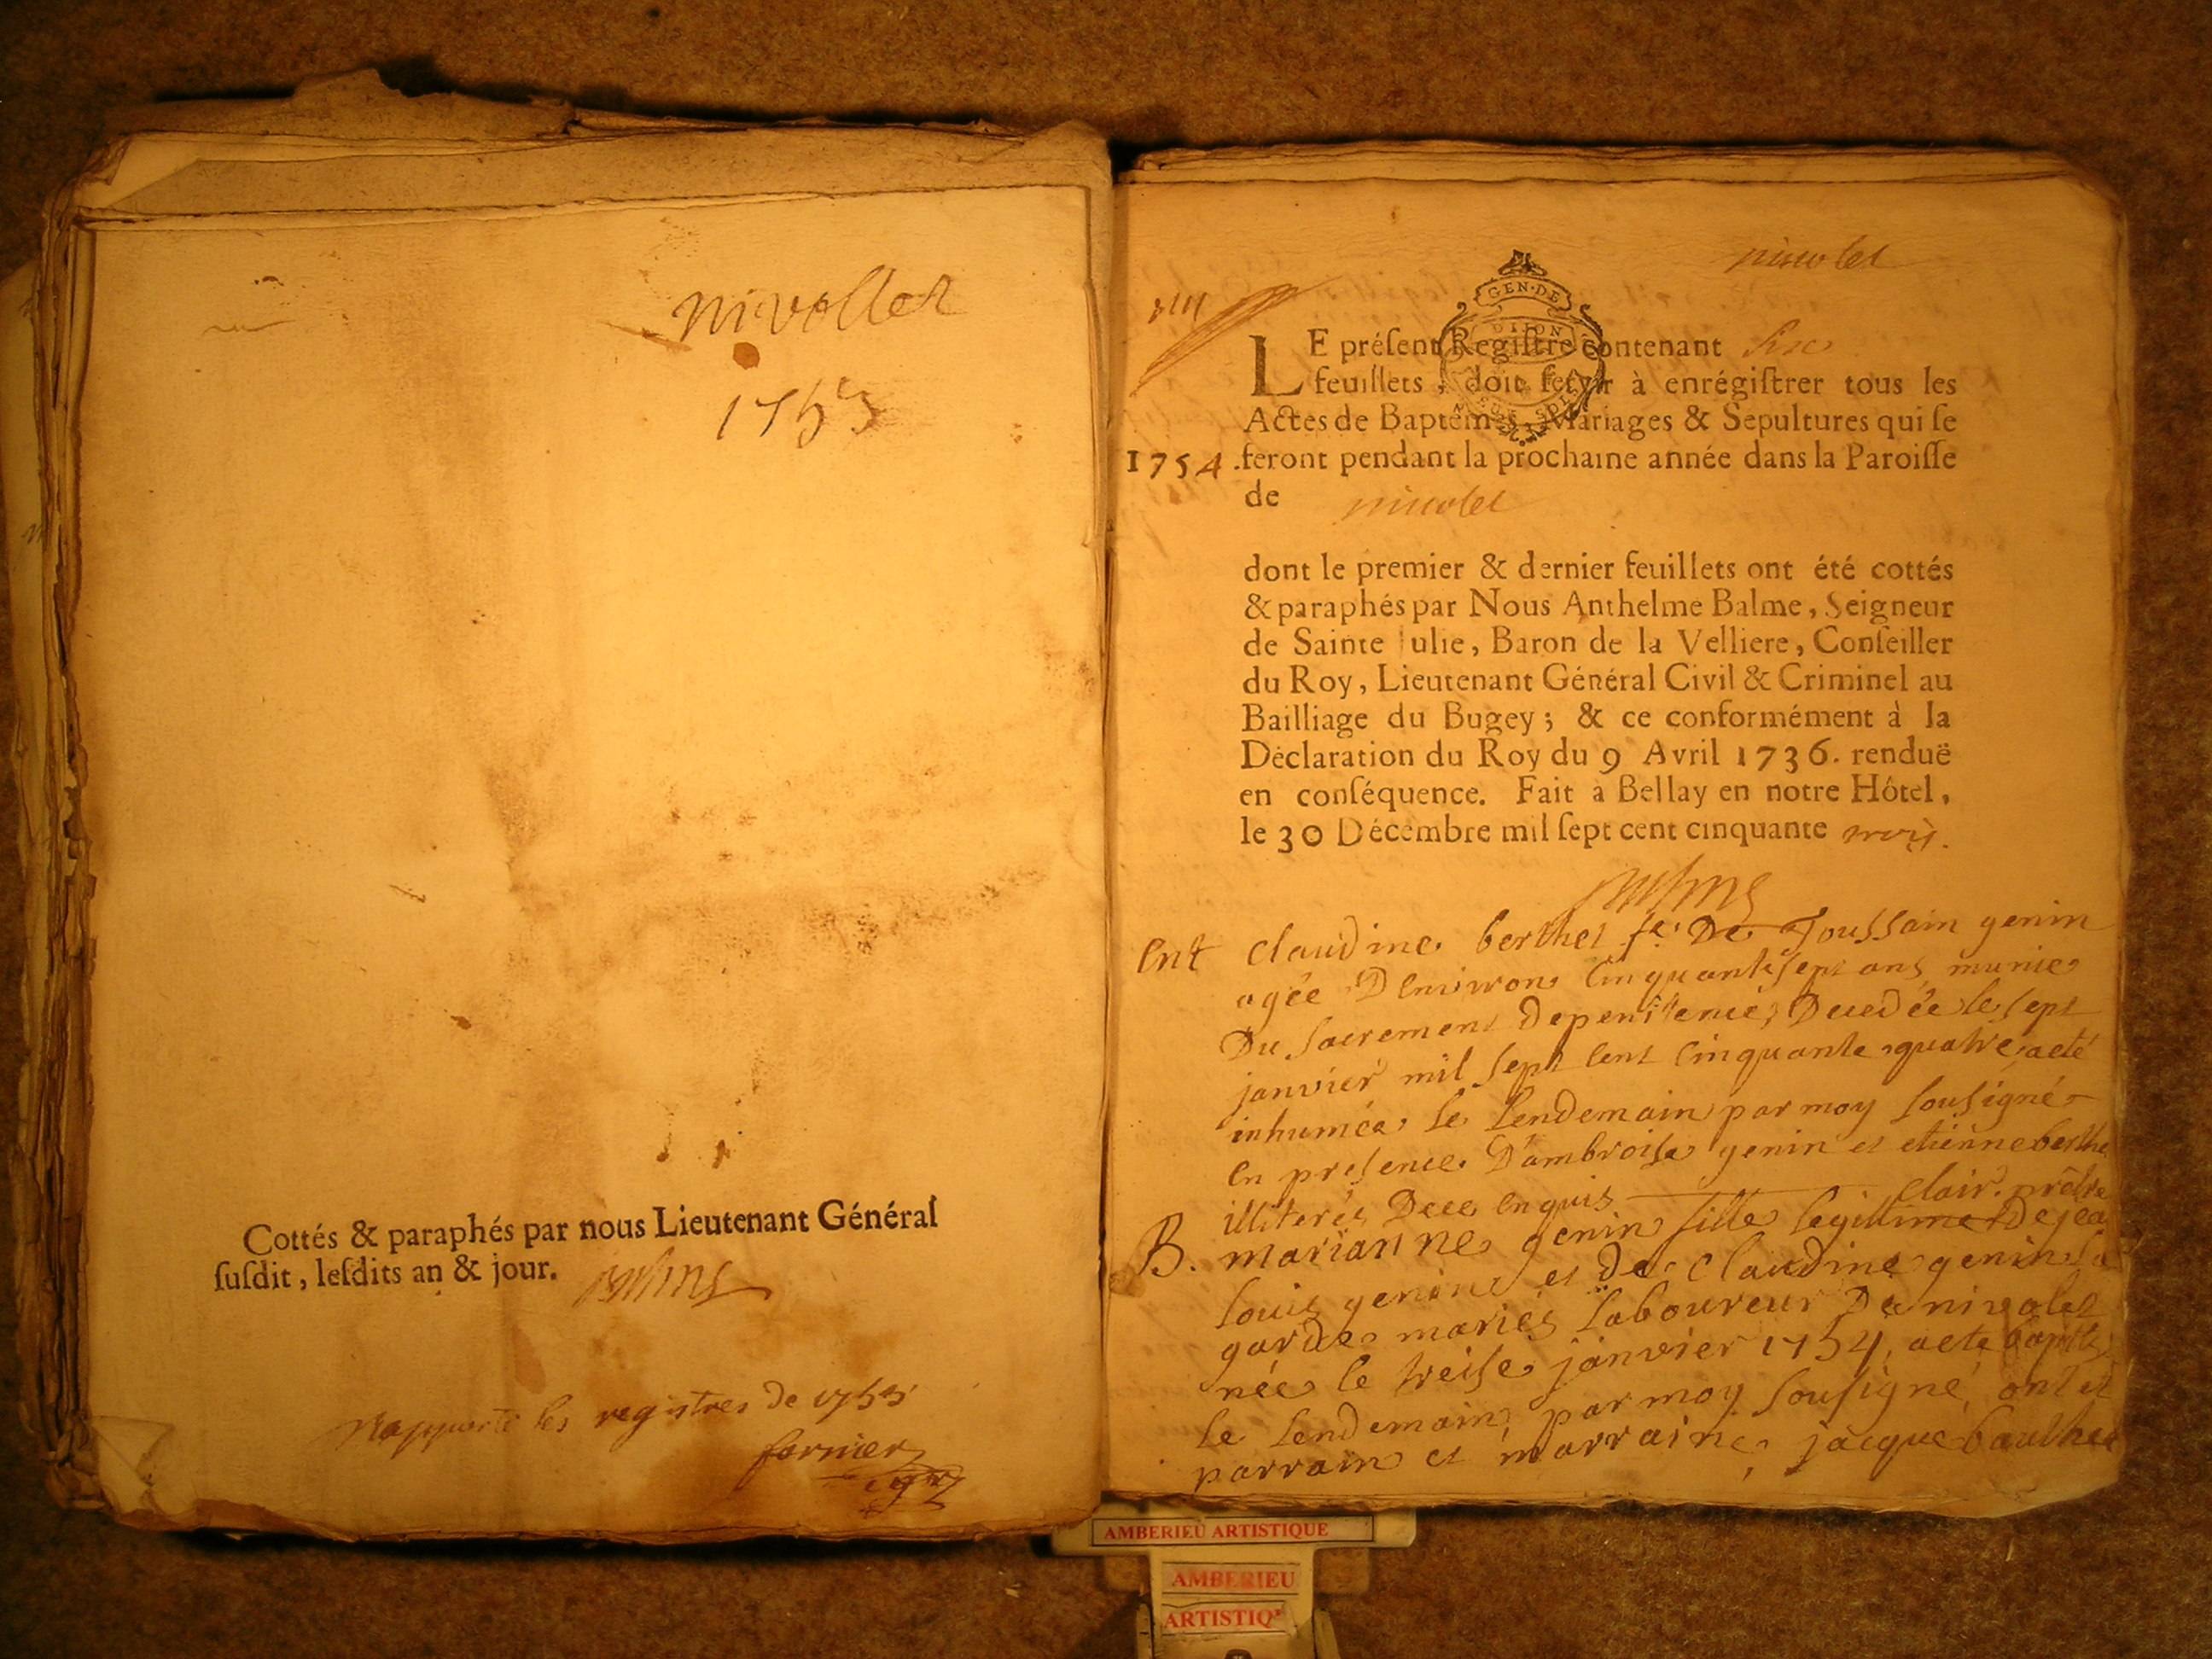 nivollet
1753
Cottés & paraphés par nous Lieutenant Général
suſdit, leſdits an & jour.
Rapporté les registres de 1753
nivolet
GEN·DE
DIJON
LE préſent Regiſtre contenant six
feuillets, doit ſervir à enrégiſtrer tous les
Actes de Baptêmes, Mariages & Sepultures qui ſe
1754. feront pendant la prochaine année dans la Paroiſſe
de nivolet
dont le premier & dernier feuillets ont été cottés
& paraphés par Nous Anthelme Balme, Seigneur
de Sainte Julie, Baron de la Velliere, Conſeiller
du Roy, Lieutenant Général Civil & Criminel au
Bailliage du Bugey; & ce conformément à la
Déclaration du Roy du 9 Avril 1736. renduë
en conſéquence. Fait à Bellay en notre Hôtel,
le 30 Décembre mil ſept cent cinquante trois.
Ent claudine berthet fe. De Toussain genin
agée Denviron cinquante sept ans munie
Du sacrement de penitence, Decedée le sept
janvier mil sept cent cinquante quatre, a eté
inhumée le Lendemain par moy sousigné
en presence D'ambroise genin et etienne berthe
illiterés De ce enquis clair. prêtre
B. marianne genin fille legittime De jea
louis genin et de claudine genin la
garde mariés laboureur De nivolet
née le treise janvier 1754, a eté baptis
le lendemain par moy sousigné, ont et
parrain et marraine, jacque bauthet
AMBERIEU ARTISTIQUE
AMBERIEU
ARTISTIQ